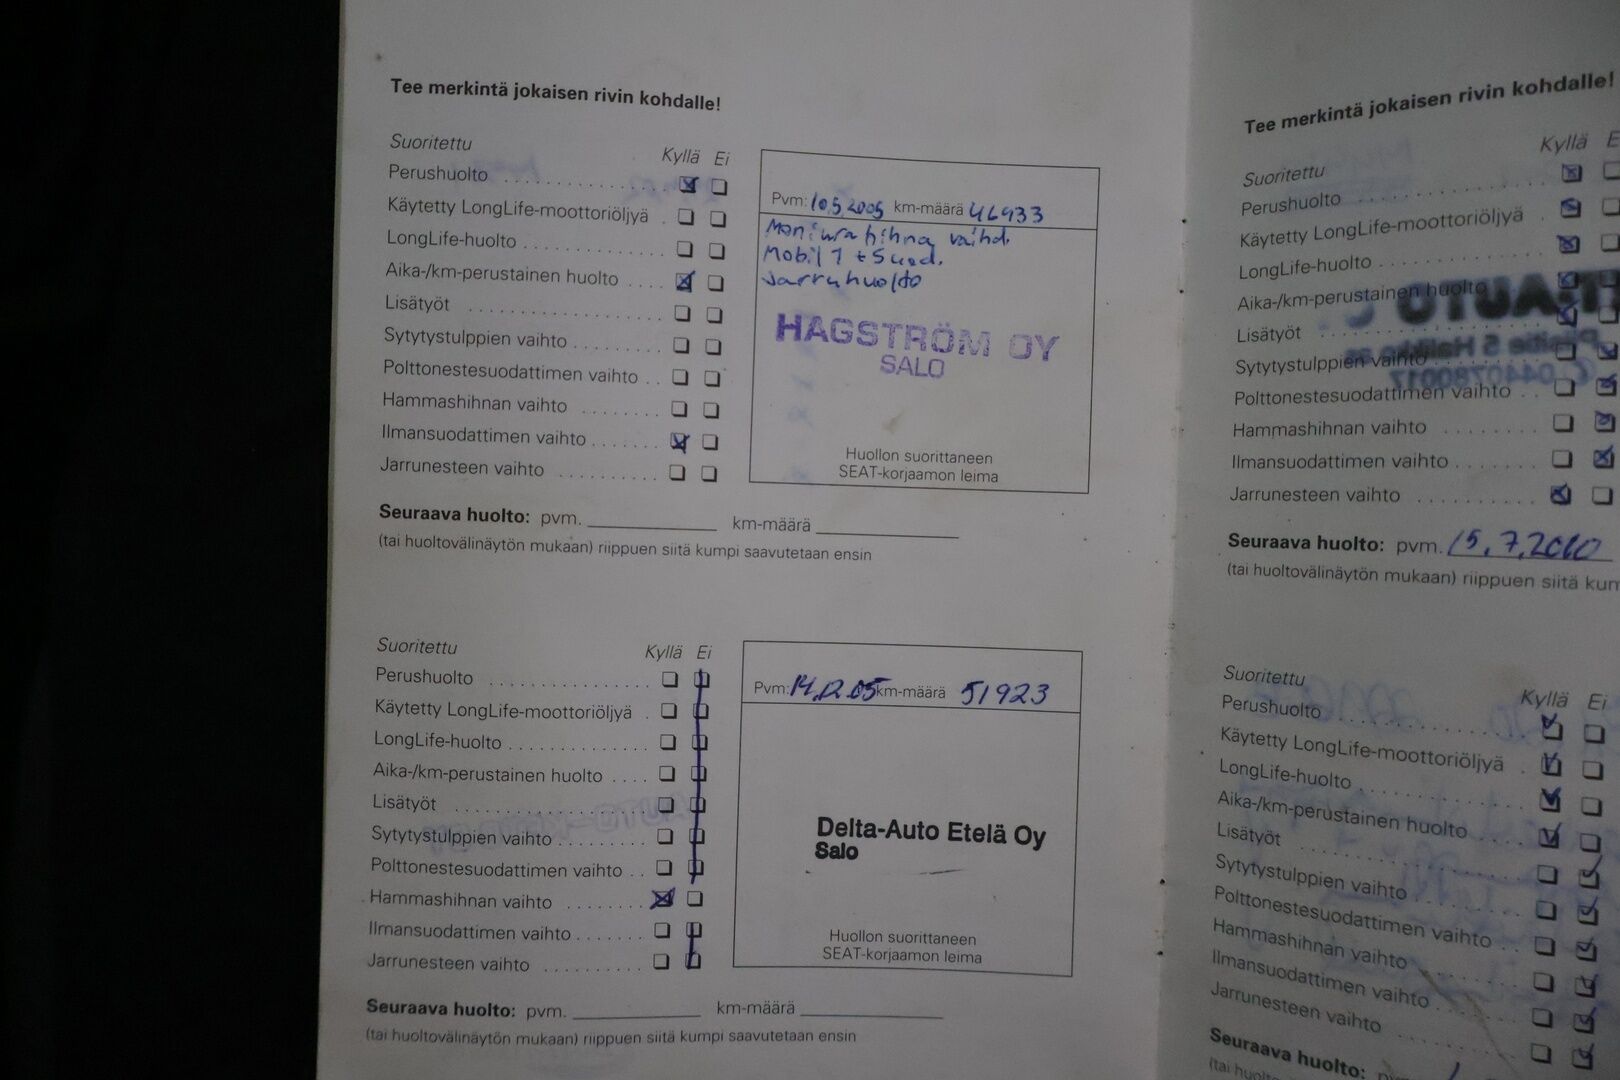 Tee merkintä jokaisen rivin kohdalle!
Suoritettu Kyllä Ei
Perushuolto
Käytetty LongLife-moottoriöljyä
LongLife-huolto
Aika-/km-perustainen huolto
Lisätyöt
Sytytystulppien vaihto
Polttonestesuodattimen vaihto
Hammashihnan vaihto
Ilmansuodattimen vaihto
Jarrunesteen vaihto
Pvm: 10.5.2005 km-määrä 46933
Moniurahihna vaihd.
Mobil 1 + Suod.
Jarruhuolto
HAGSTRÖM OY
SALO
Huollon suorittaneen
SEAT-korjaamon leima
Seuraava huolto: pvm. km-määrä
(tai huoltovälinäytön mukaan) riippuen siitä kumpi saavutetaan ensin
Suoritettu Kyllä Ei
Perushuolto
Käytetty LongLife-moottoriöljyä
LongLife-huolto
Aika-/km-perustainen huolto
Lisätyöt
Sytytystulppien vaihto
Polttonestesuodattimen vaihto
Hammashihnan vaihto
Ilmansuodattimen vaihto
Jarrunesteen vaihto
Pvm: 14.12.05 km-määrä 51923
Delta-Auto Etelä Oy
Salo
Huollon suorittaneen
SEAT-korjaamon leima
Seuraava huolto: pvm. km-määrä
(tai huoltovälinäytön mukaan) riippuen siitä kumpi saavutetaan ensin
Tee merkintä jokaisen rivin kohdalle!
Suoritettu Kyllä E
Perushuolto
Käytetty LongLife-moottoriöljyä
LongLife-huolto
Aika-/km-perustainen huolto
Lisätyöt
Sytytystulppien vaihto
Polttonestesuodattimen vaihto
Hammashihnan vaihto
Ilmansuodattimen vaihto
Jarrunesteen vaihto
Seuraava huolto: pvm. 15.7.2010
(tai huoltovälinäytön mukaan) riippuen siitä kum
Suoritettu Kyllä Ei
Perushuolto
Käytetty LongLife-moottoriöljyä
LongLife-huolto
Aika-/km-perustainen huolto
Lisätyöt
Sytytystulppien vaihto
Polttonestesuodattimen vaihto
Hammashihnan vaihto
Ilmansuodattimen vaihto
Jarrunesteen vaihto
Seuraava huolto:
(tai huoltovälinäytön